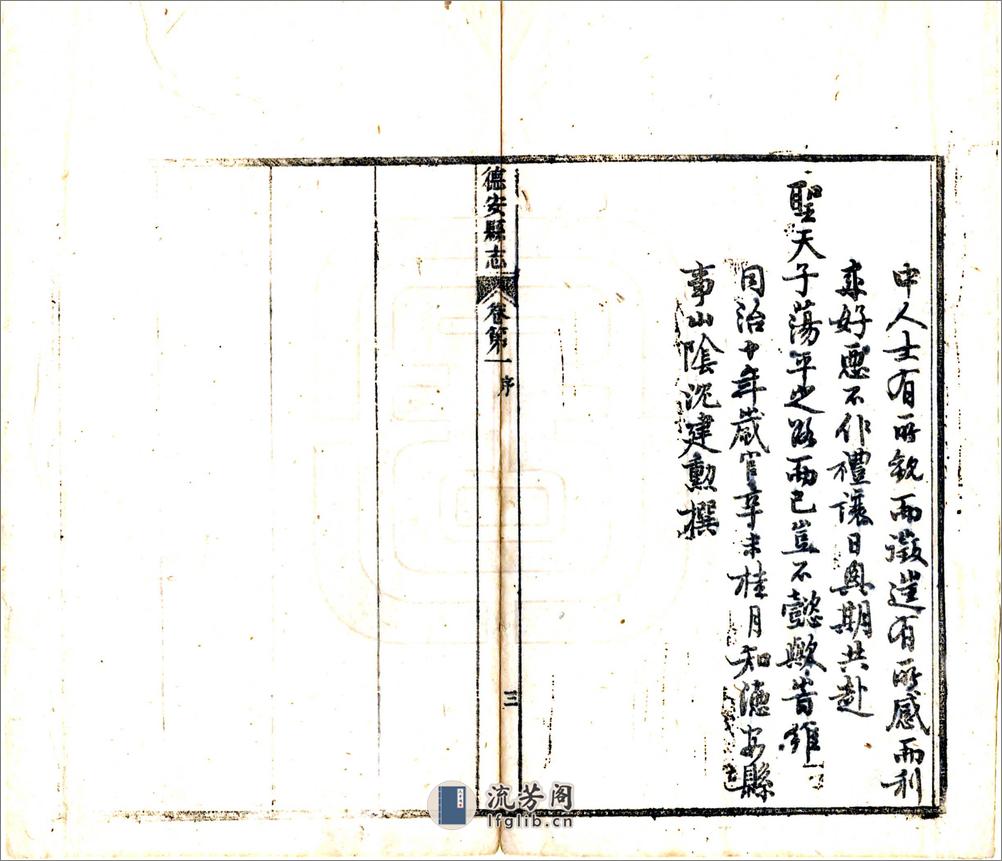 中人士有所觀而激逰有所感而利
來好惡不作禮讓日興期共赴
聖天子蕩平之路而已豈不懿歟旹維
同治十年歲官辛未桂月知德安縣
事山陰沈建勳撰
德安縣志 卷第一 序 三
流芳阁
lfglib.cn